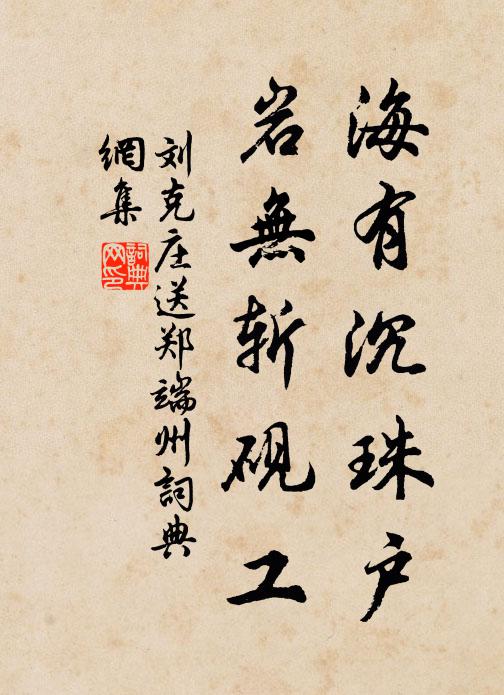 海有沉珠户
岩無斩砚工
刘克庄送郑端州詞典
網集
詞典
网印